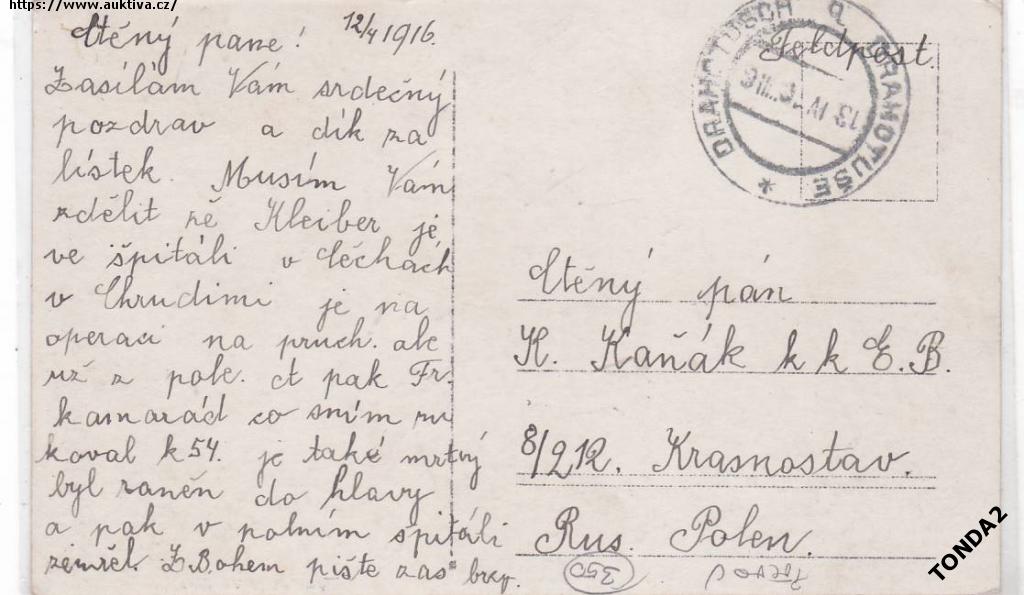 https://www.auktiva.cz/
Ctěný pane! 12/4 1916.
Zasílám Vám srdečný
pozdrav a dík za
lístek. Musím Vám
zdělit že Kleiber je
ve špitáli v Čéchách
v Chrudimi je na
operaci na pruch. ale
už z pole. A pak Fr.
kamarád co sním ru
koval k 54. je také mrtvý
byl raněn do hlavy
a pak v polním špitáli
zemřel. Z. Bohem pište zas brzy.
Feldpost.
DRAHOTUSCH * DRAHOTUŠE
13 IV 16
Ctěný pán
K. Kaňák k k E. B.
8/212. Krasnostav.
Rus. Polen.
350
TONDA2